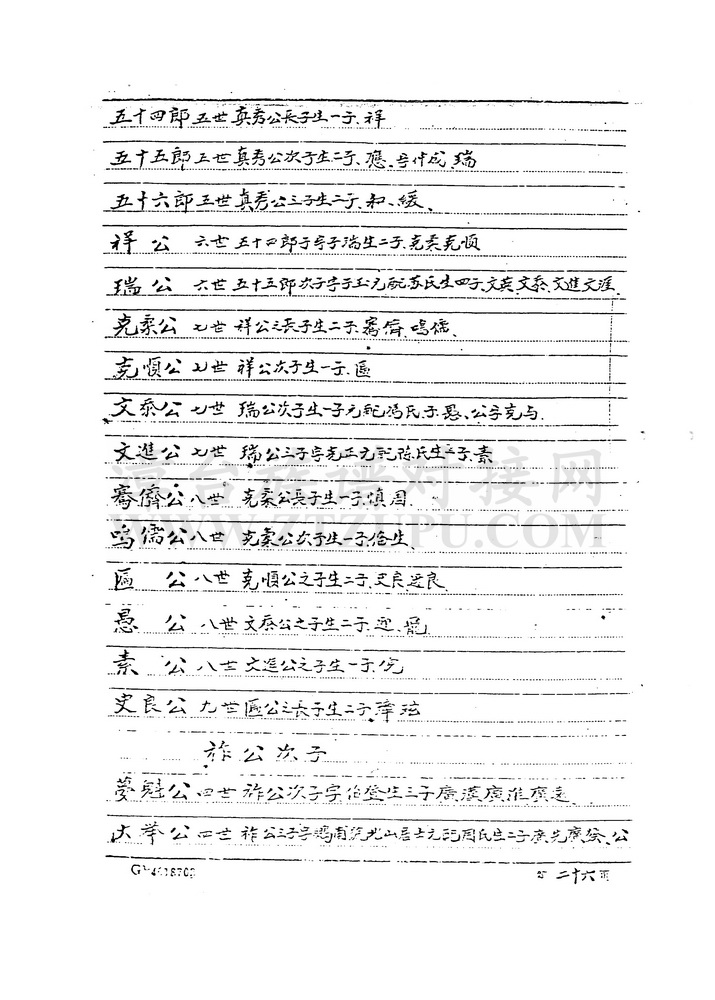 五十四郎 五世 真秀公長子生一子、祥
五十五郎 五世 真秀公次子生二子、應、号仲成、瑞
五十六郎 五世 真秀公三子生二子、和、緩、
祥公 六世 五十四郎子字子瑞生二子、克柔克順
瑞公 六世 五十五郎次子字子玉元配苏氏生四子、文英、文泰、文進文涯
克柔公 七世 祥公之長子生二子、騫儕、鳴儒、
克順公 七世 祥公次子生一子、區
文泰公 七世 瑞公次子生一子元配馮氏子、愚、公字克与
文進公 七世 瑞公三子字克正元配陈氏生子、素
騫儕公 八世 克柔公長子生一子、慎因
鳴儒公 八世 克柔公次子生一子、生
區公 八世 克順公之子生二子、史良良
愚公 八世 文泰公之子生二子、迎、
素公 八世 文進公之子生一子、
史良公 九世 區公之長子生二子、璋玹
祚公次子
夢魁公 四世 祚公次子字伯登生三子廣漢廣淮廣遠
大举公 四世 祚公三子字鵬南号光山居士元配周氏生二子廣先廣、公
二十六页
澶台族谱对接网
WWW.ZTZUPU.COM